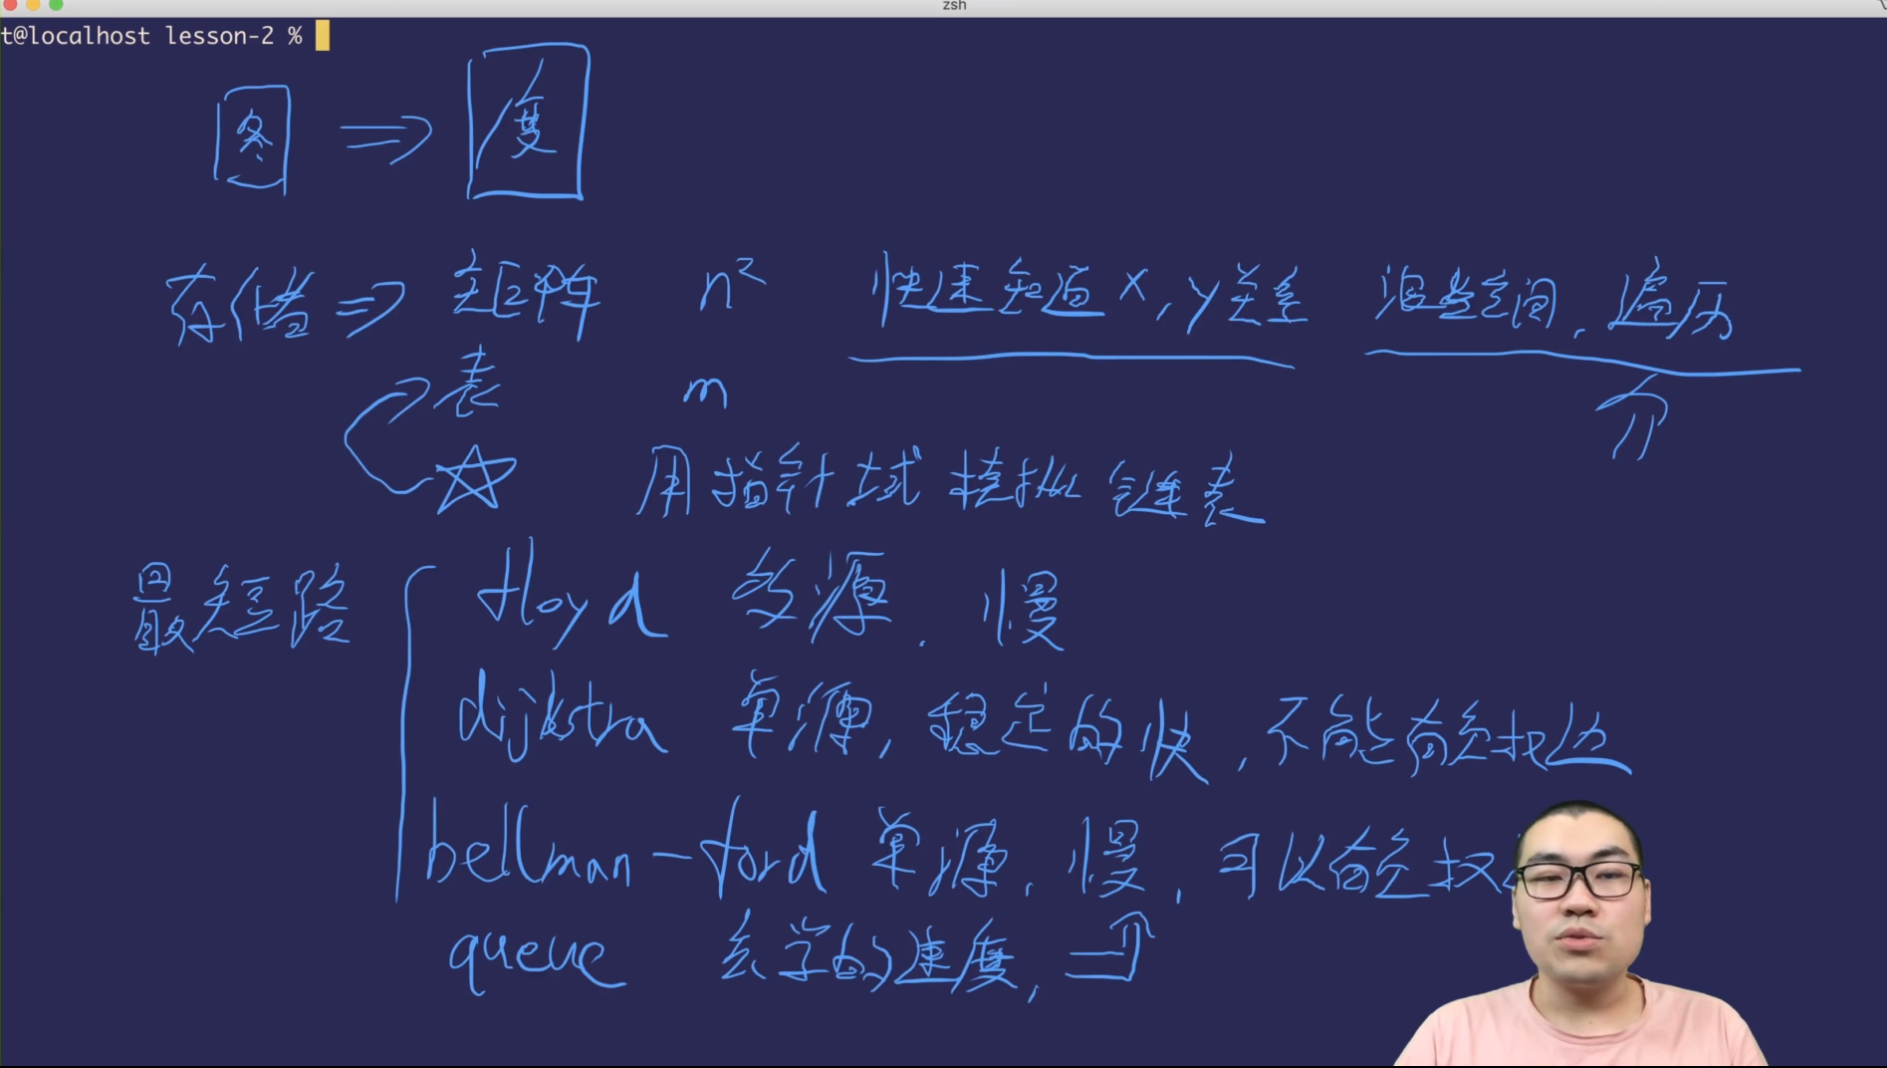 zsh
t@localhost lesson-2 %
图 => 度
存储 => 矩阵 n² 快速知道x,y关系 浪费空间,遍历
表 m
用指针域模拟链表
最短路
floyd 多源,慢
dijkstra 单源,稳定的快,不能有负权边
bellman-ford 单源,慢,可以有负权
queue 玄学的速度,